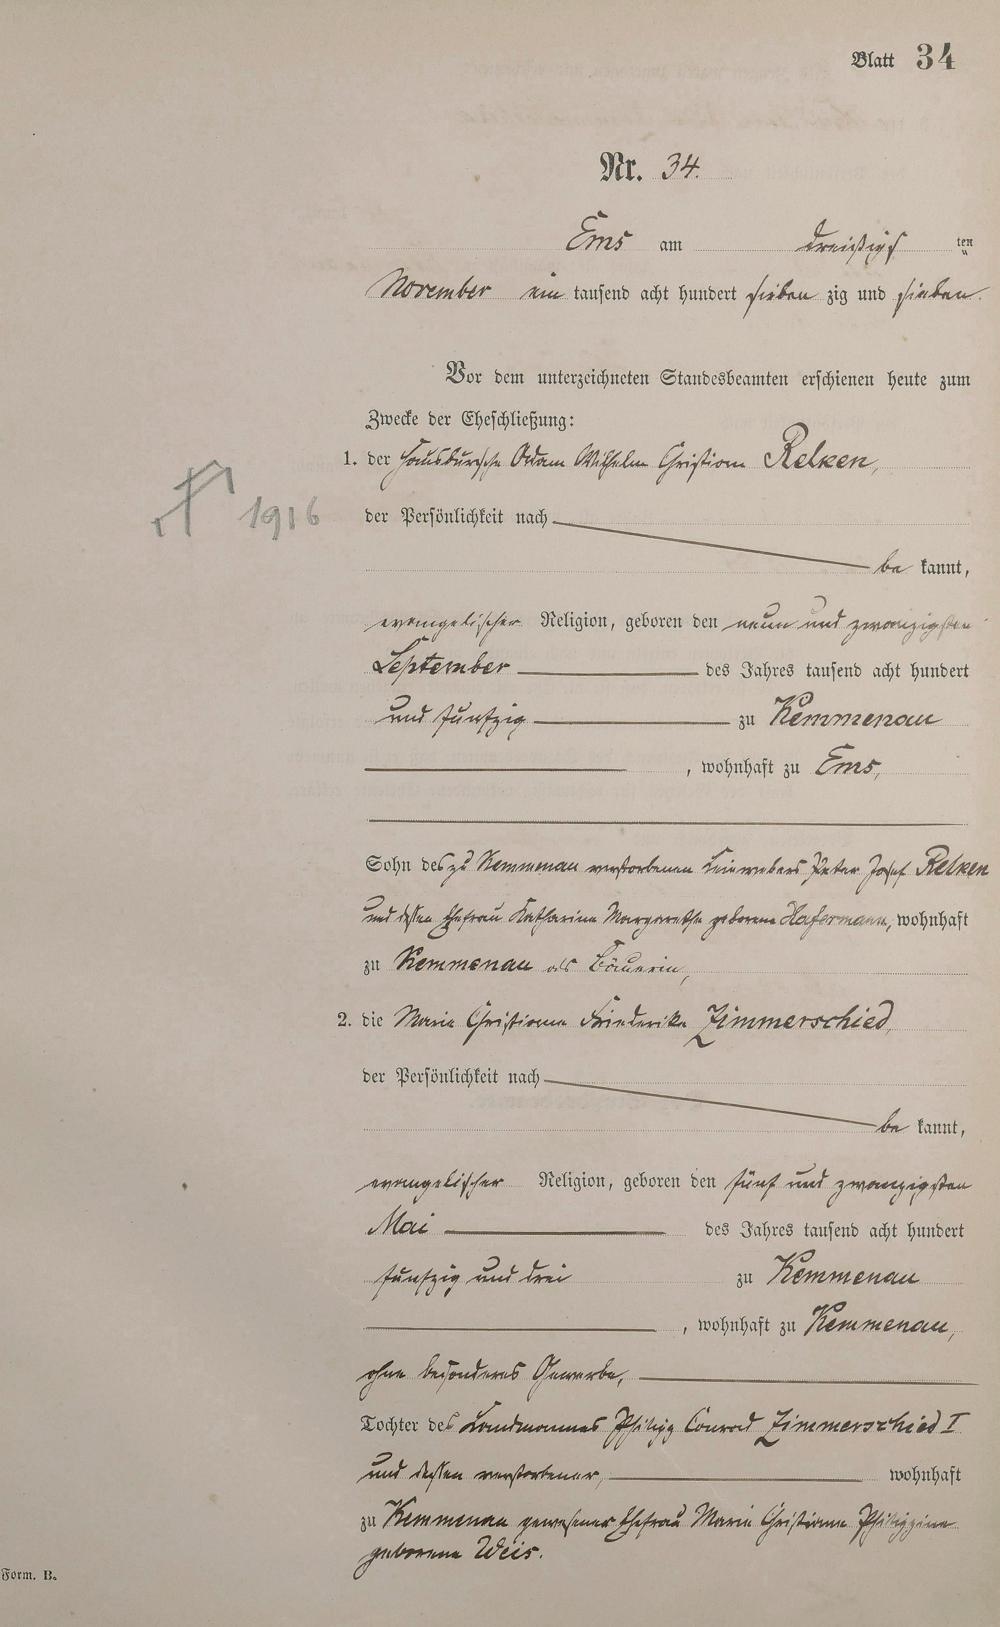 Blatt 34
Nr. 34.
Ems am dreißigs ten
November ein tausend acht hundert sieben zig und sieben.
Vor dem unterzeichneten Standesbeamten erschienen heute zum
Zwecke der Eheschließung:
1. der Hausbursche Adam Wilhelm Christian Relken,
der Persönlichkeit nach
be kannt,
† 1916
evangelischer Religion, geboren den neun und zwanzigsten
September des Jahres tausend acht hundert
und funfzig zu Kemmenau
, wohnhaft zu Ems,
Sohn des zu Kemmenau verstorbenen Leinwebers Peter Josef Relken
und dessen Ehefrau Katharine Margarethe geborene Hafermann, wohnhaft
zu Kemmenau als Bäuerin,
2. die Marie Christiane Friederike Zimmerschied,
der Persönlichkeit nach
be kannt,
evangelischer Religion, geboren den fünf und zwanzigsten
Mai des Jahres tausend acht hundert
funfzig und drei zu Kemmenau
, wohnhaft zu Kemmenau,
ohne besonderes Gewerbe,
Tochter des Landmannes Philipp Conrad Zimmerschied I
und dessen verstorbener, wohnhaft
zu Kemmenau gewesener Ehefrau Marie Christiane Philippine
geborene Weis.
Form. B.